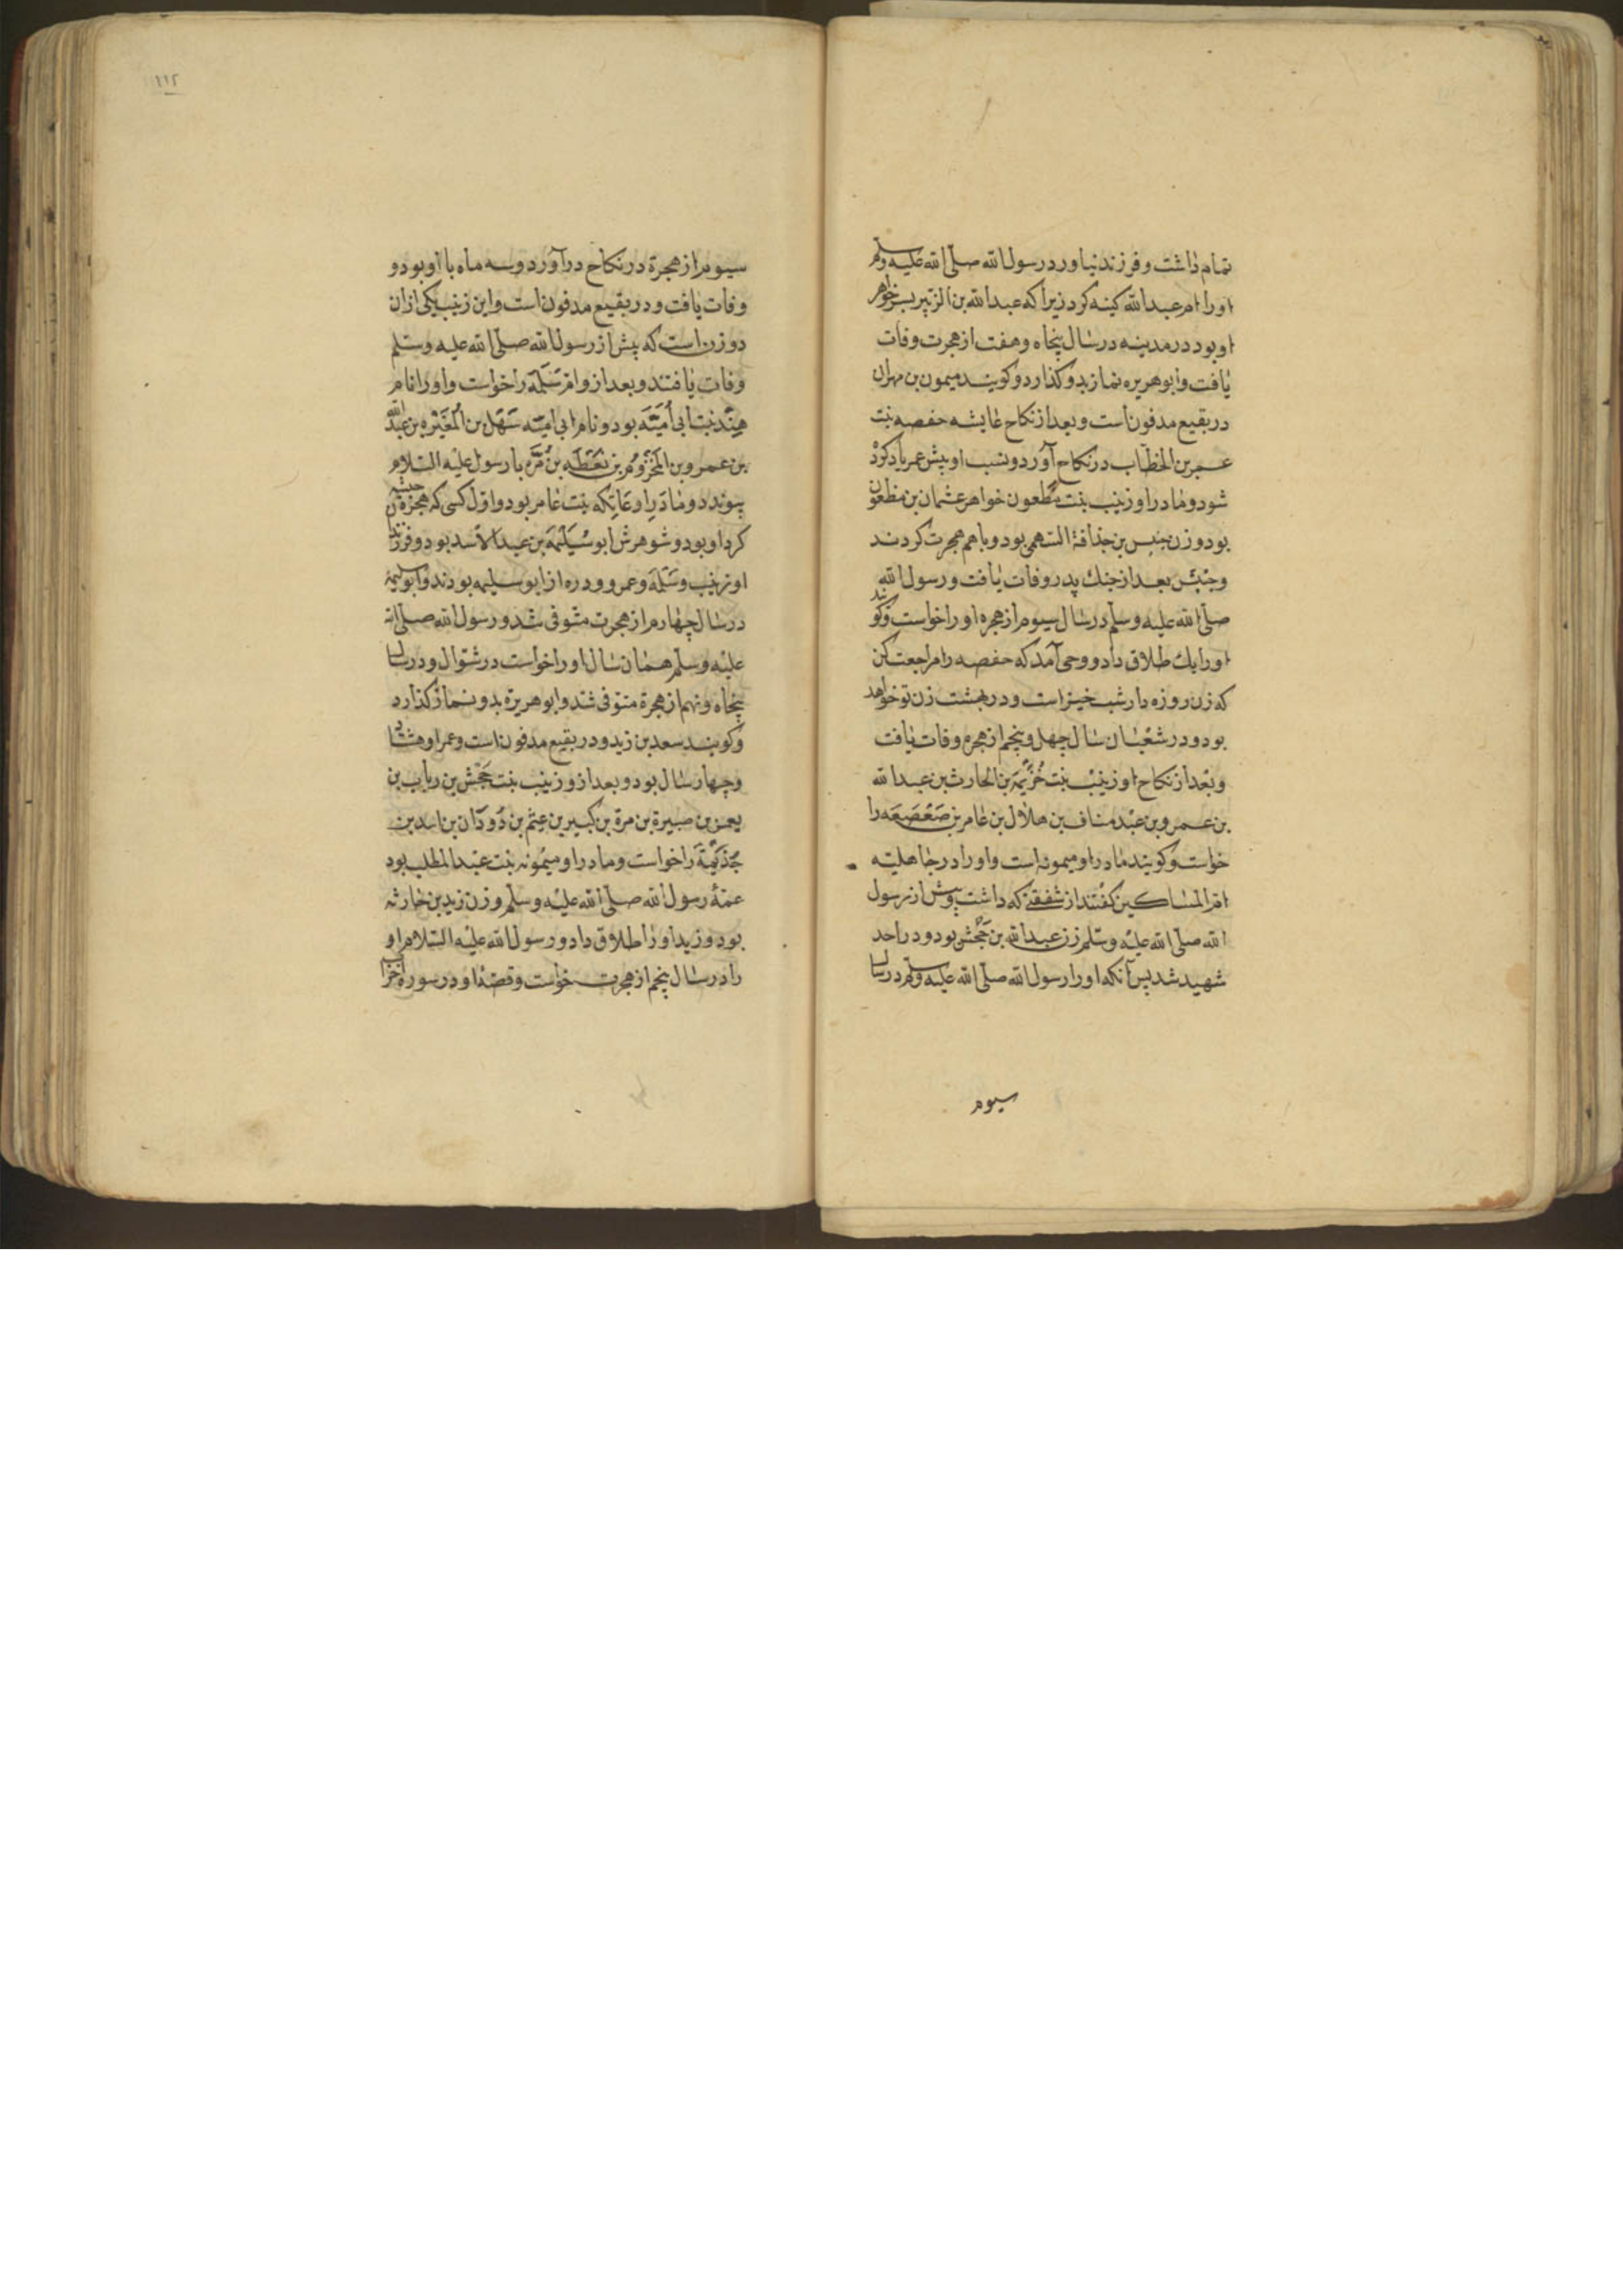 تمام داشت و فرزند نیاورد رسول الله صلی الله علیه وسلم
اورا ام عبد الله کینه کرد زیرا که عبد الله بن الزبیر بسر خواهر
او بود در مدینه در سال پنجاه و هفت از هجرت وفات
یافت و ابو هریره نماز بدو کذارد و کویند میمون بن مهران
در بقیع مدفونست و بعد از نکاح عایشه حفصه بنت
عمر بن الخطاب در نکاح آورد و نسب او پیش عمر یاد کرد
شود و مادر او زینب بنت مظعون خواهر عثمان بن مظعون
بود و زن بن حذافة السهمی بود و باهم هجرت کردند
و بعد از جنك بدر وفات یافت و رسول الله
صلی الله علیه وسلم در سال سیوم از هجره او را خواست و کویند
اورا یك طلاق داد و وحی آمد که حفصه را مراجعت کن
که زن روزه دار شب خیزاست و در بهشت زن تو خواهد
بود و در شعبان سال چهل و پنجم از هجره وفات یافت
و بعد از نکاح او زینب بنت خزیمة بن الحارث بن عبد الله
بن عمرو بن عبد مناف بن هلال بن عامر بن صعصعه را
خواست و کویند مادر او میمونه است و او را در جاهلیته
ام المساکین کفتند از شفقتی که داشت و پیش از رسول
الله صلی الله علیه وسلم زن عبد الله بن جحش بود و در احد
شهید شد پس آنکه اورا رسول الله صلی الله علیه وسلم در سال
سیوم
۱۱۲
سیوم از هجرة در نکاح در آورد و سه ماه با او بود و
وفات یافت و در بقیع مدفونست و این زینب یکی از ان
دو زن است که پیش از رسول الله صلی الله علیه وسلم
وفات یافتند و بعد از و ام سلمة را خواست و او را نام
هند بنت ابی امیه بود و نام ابی امیه سهل بن المغیره بن عبد الله
بن عمرو بن المخزوم بن یقظه بن مره با رسول علیه السلام
پیوندد و مادر او عاتکه بنت عامر بود و اول کسی که هجرة حبشه
کرد او بود و شوهرش ابو سلیمة بن عبد الاسد بود و فرزند
او زینب و سلمه و عمرو و دره از ابو سلیمه بودند و ابو سلیمة
در سال چهارم از هجرت متوفی شد و رسول الله صلی الله
علیه وسلم همان سال او را خواست در شوال و در سال
پنجاه و نهم از هجرة متوفی شد و ابو هریرة بدو نماز کذارد
و کویند سعد بن زید و در بقیع مدفونست و عمر او هشتاد
و چهار سال بود و بعد از و زینب بنت جحش بن ریاب بن
یعمر بن صبیرة بن مرة بن کبیر بن غنم بن دودان بن اسد بن
خذیمة را خواست و مادر او میمونه بنت عبد المطلب بود
عمة رسول الله صلی الله علیه وسلم و زن زید بن حارثه
بود و زید او را طلاق داد و رسول الله علیه السلام او
را در سال پنجم از هجرت خواست و قصه او در سوره احزا